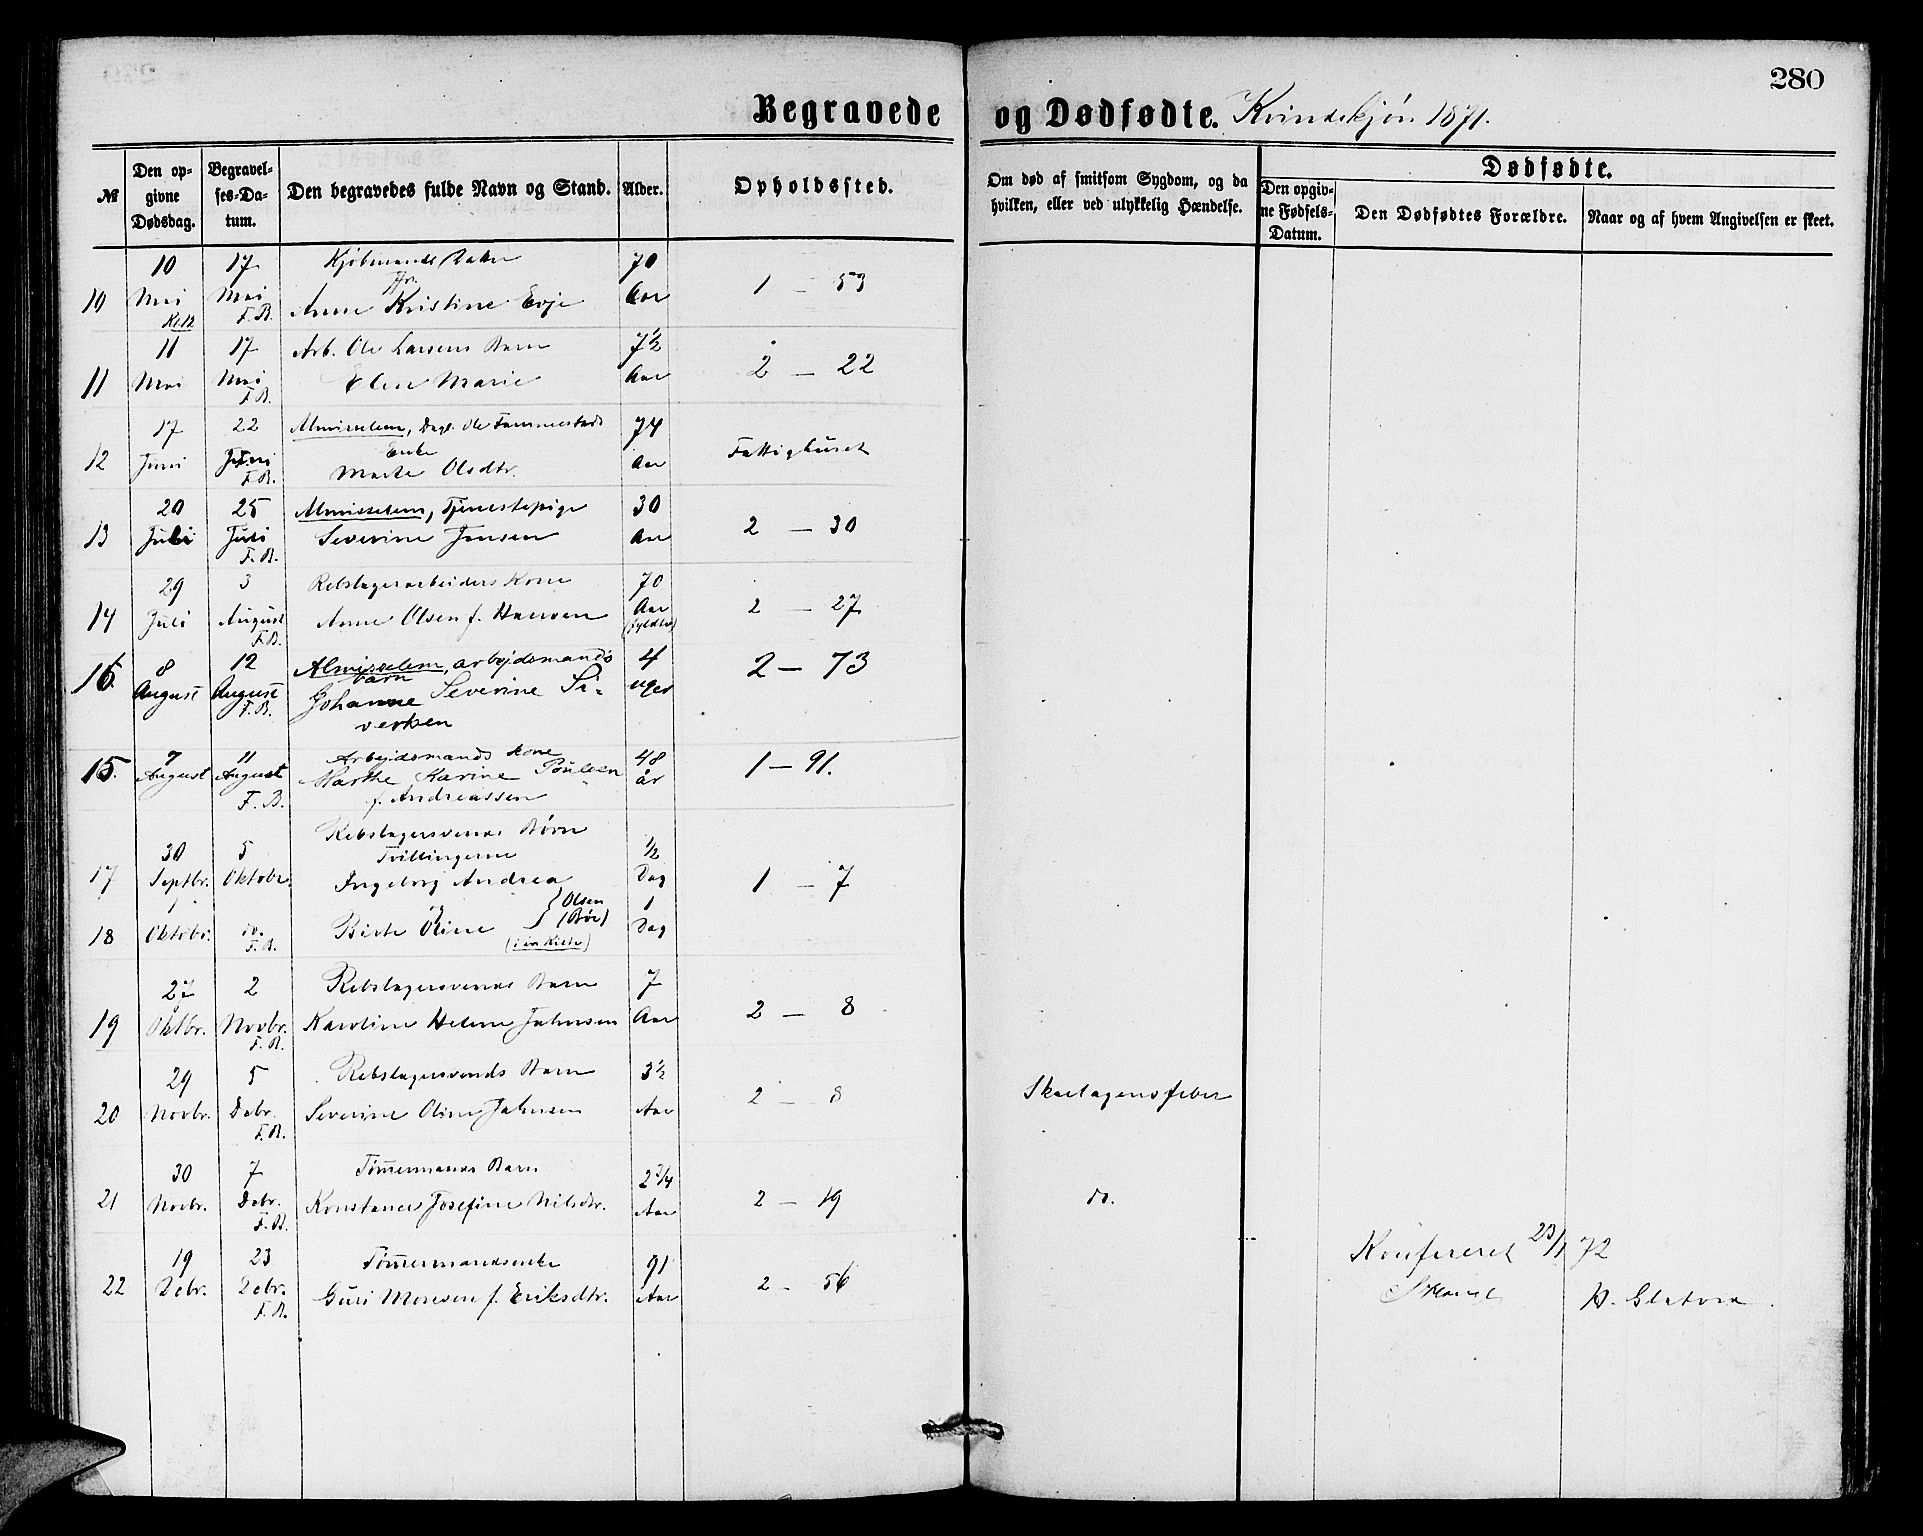 280
Begravede og Dødfødte. Kvindekjøn 1871.
№
Den opgivne Dødsdag.
Begravelses-Datum.
Den begravedes fulde Navn og Stand.
Alder.
Opholdssted.
Om død af smitsom Sygdom, og da hvilken, eller ved ulykkelig Hændelse.
Dødfødte.
Den opgivne Fødsels-Datum.
Den Dødfødtes Forældre.
Naar og af hvem Angivelsen er skeet.
10 17 Kjøbmands 70
10 Mai Mai Anne Kristine Evje Aar 1 – 53
F.B.
11 17 Arb. Ole Larsens Barn 7½
11 Mai Mai Elen Marie Aar 2 – 22
F.B.
17 22 Almisselem, Dagl. Ole Tammestads 74
Enke
12 Juni Juni Marte Olsdtr. Aar Fattighuset
F.B.
20 25 Almisselem, Tjenestepige 30
13 Juli Juli Severine Jensen Aar 2 – 30
F.B.
29 3 Rebslagerarbeiders Kone 70
14 Juli August Anne Olsen f. Hansen Aar 2 – 27
F.B. (fyldte)
8 12 Almisselem, arbejdsmands 4
barn
16. August August Johanne Severine Si- uger 2 – 73
F.B. vertsen
7 11 Arbejdsmands kone 48
15. August August Marthe Karine Poulsen år 1 – 91.
F.B. f. Andreassen
Rebslagersvends Børn
30 5 Tvillingerne ½
17 Septbr. Oktobr. Ingeborg Andrea Dag 1 – 7
1 og } Olsen 1
18 Oktobr. do. Birte Oline (Bøe) Dag
F.B. (i en Kiste)
27 2 Rebslagersvends Barn 7
19 Oktbr. Novbr. Karoline Helene Johnsen Aar 2 – 8
F.B.
29 5 Rebslagersvends Barn 3½
20 Novbr. Debr. Severine Oline Johnsen Aar 2 – 8 Skarlagensfeber
F.B.
30 7 Tømermands Barn 2¾
21 Novbr. Debr. Konstance Josefine Nilsdtr. Aar 2 – 19 do.
F.B.
19 23 Tømermandsenke 91
22 Debr. Debr. Guri Monsen f. Eriksdtr. Aar 2 – 56
F.B.
Konfereret 23/1 72